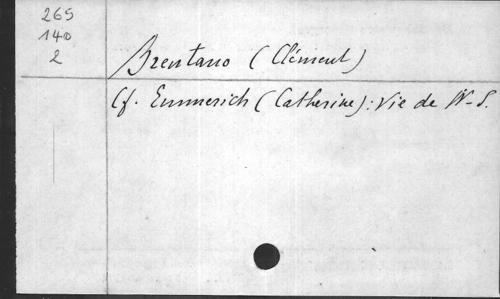 265
140
2
Brentano (Clément)
Cf. Emmerich (Catherine): Vie de N-S.